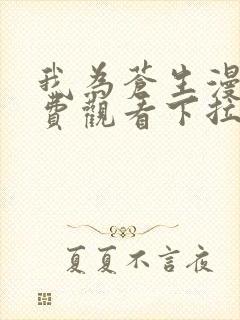 我為蒼生漫
費觀看下拉
夏夏不言夜